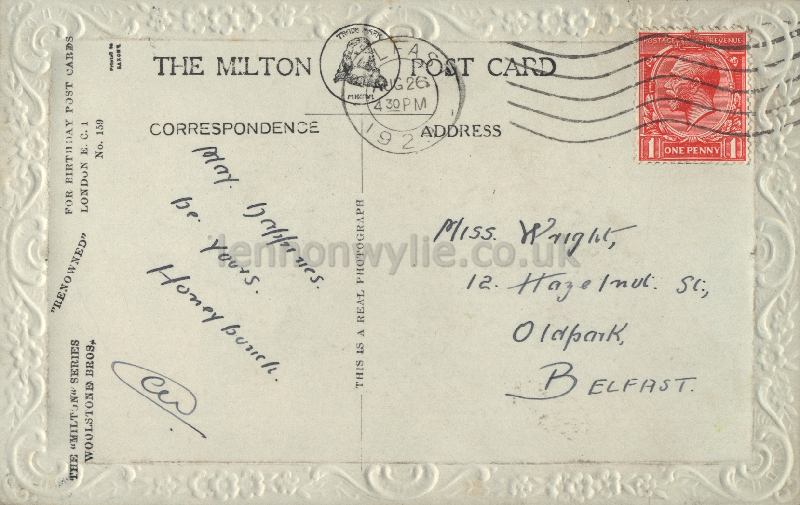 THE MILTON POST CARD
TRADE MARK
MILTON
AUG 26
4 30 PM
192
POSTAGE REVENUE
1 ONE PENNY 1
CORRESPONDENCE
ADDRESS
May happiness
be yours.
Honeybunch.
Miss. Wright,
12. Hazelnut. St.,
Oldpark,
BELFAST.
THIS IS A REAL PHOTOGRAPH
THE "MILTON" SERIES "RENOWNED" FOR BIRTHDAY POST CARDS
WOOLSTONE BROS., LONDON E.C. 1
No. 159
lennonwylie.co.uk